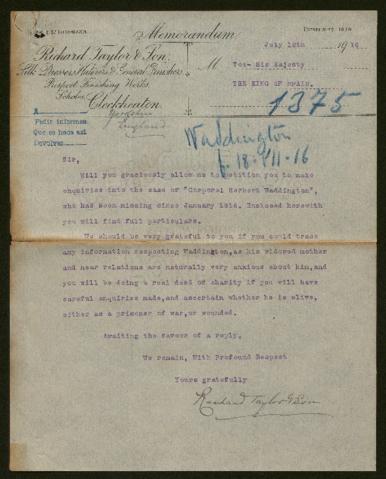 Memorandum
Richard Taylor & Son,
Silk Dressers, & General Finishers
Prospect Finishing Works
Scholes
Cleckheaton,
Yorkshire
England
July 12th 1916
M To:- His Majesty
THE KING OF SPAIN.
1375
Waddington
18-VII-16
A
Pedir informes
Que se haga asi
Devolver
Sir,
Will you graciously allow us to petition you to make
enquiries into the case of "Corporal Herbert Waddington",
who has been missing since January 1st. Enclosed herewith
you will find full particulars.
We should be very grateful to you if you could trace
any information respecting Waddington, as his widowed mother
and near relations are naturally very anxious about him, and
you will be doing a real deed of charity if you will have
careful enquiries made, and ascertain whether he is alive,
either as a prisoner of war, or wounded.
Awaiting the favour of a reply,
We remain, With Profound Respect
Yours gratefully
Richard Taylor & Son